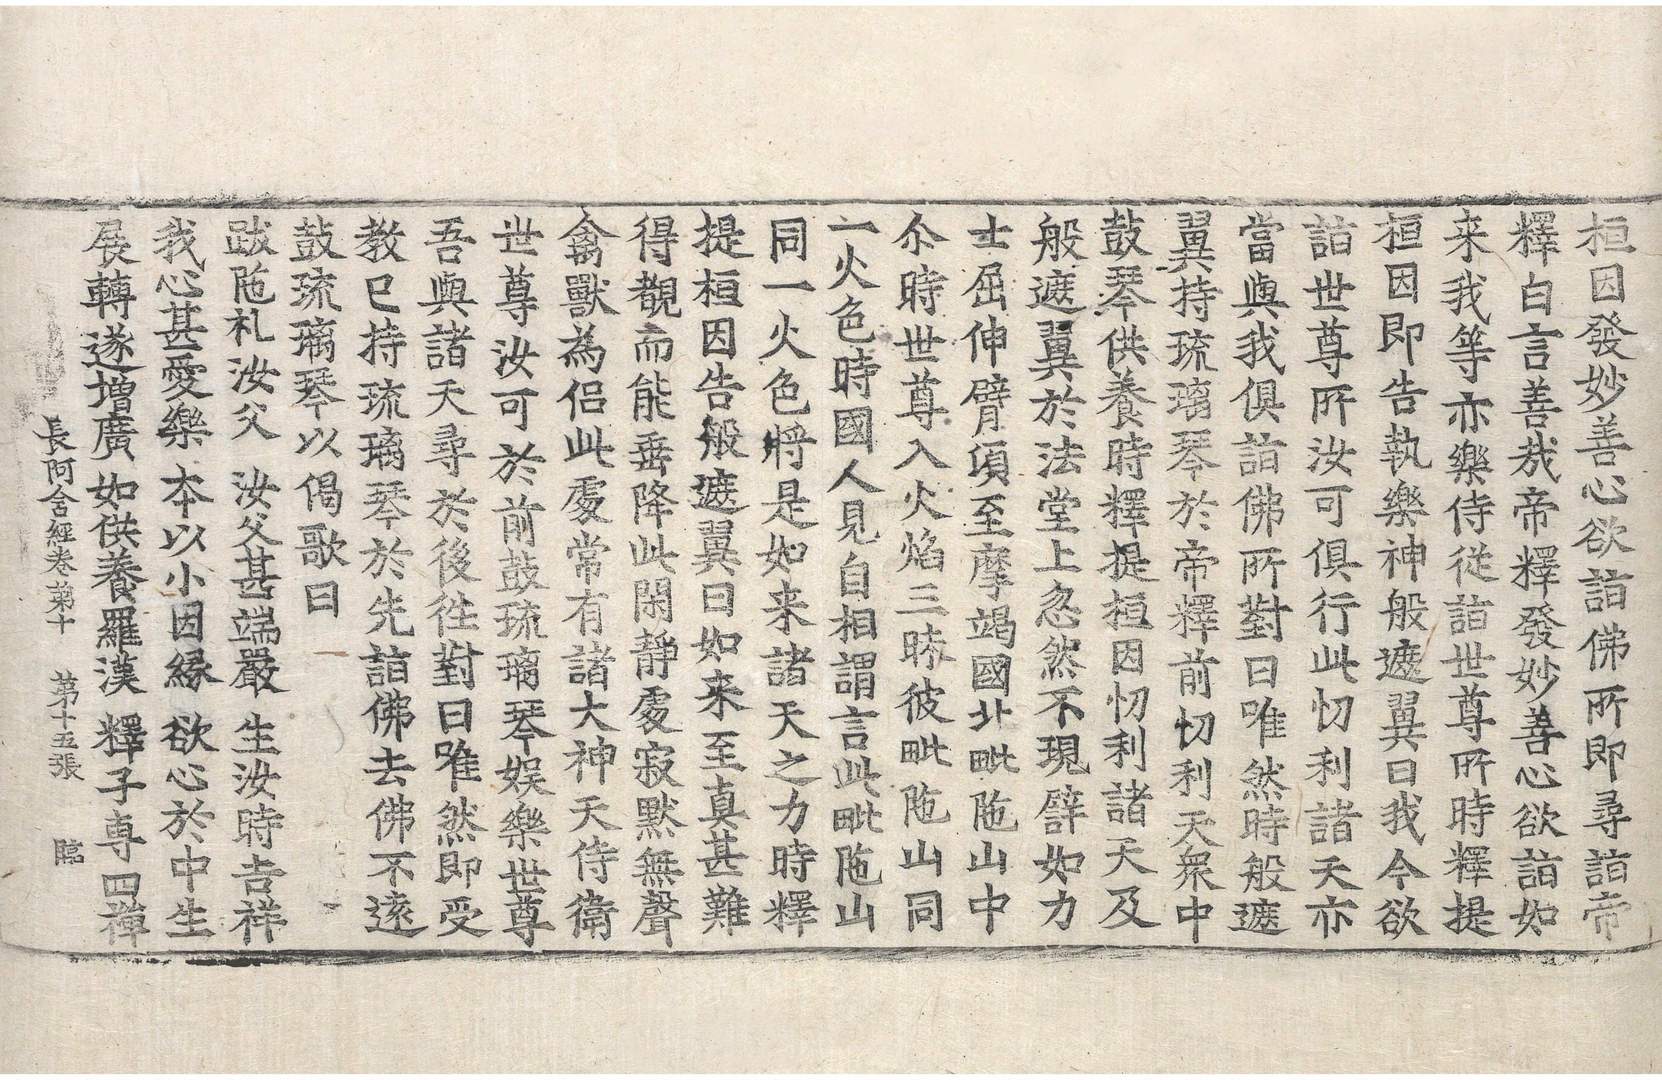 桓因發妙善心欲詣佛所即尋詣帝
釋白言善哉帝釋發妙善心欲詣如
来我等亦樂侍従詣世尊所時釋提
桓因即告執樂神般遮翼曰我今欲
詣世尊所汝可俱行此忉利諸天亦
當與我俱詣佛所對曰唯然時般遮
翼持琉璃琴於帝釋前忉利天衆中
鼓琴供養時釋提桓因忉利諸天及
般遮翼於法堂上忽然不現譬如力
士屈伸臂頃至摩竭國北毗陁山中
尒時世尊入火焰三昧彼毗陁山同
一火色時國人見自相謂言此毗陁山
同一火色將是如来諸天之力時釋
提桓因告般遮翼曰如来至真甚難
得覩而能垂降此閑靜處寂默無聲
禽獸為侶此處常有諸大神天侍衛
世尊汝可於前鼓琉璃琴娛樂世尊
吾與諸天尋於後往對曰唯然即受
教已持琉璃琴於先詣佛去佛不遠
鼓琉璃琴以偈歌曰
跋陁礼汝父 汝父甚端嚴 生汝時吉祥
我心甚愛樂 夲以小因縁 欲心於中生
展轉遂增廣 如供養羅漢 釋子專四禪
長阿含經卷第十 第十五張 臨